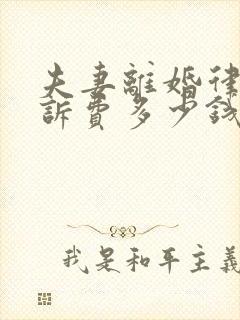 夫妻離婚律
訴費多少錢
我是和平主義